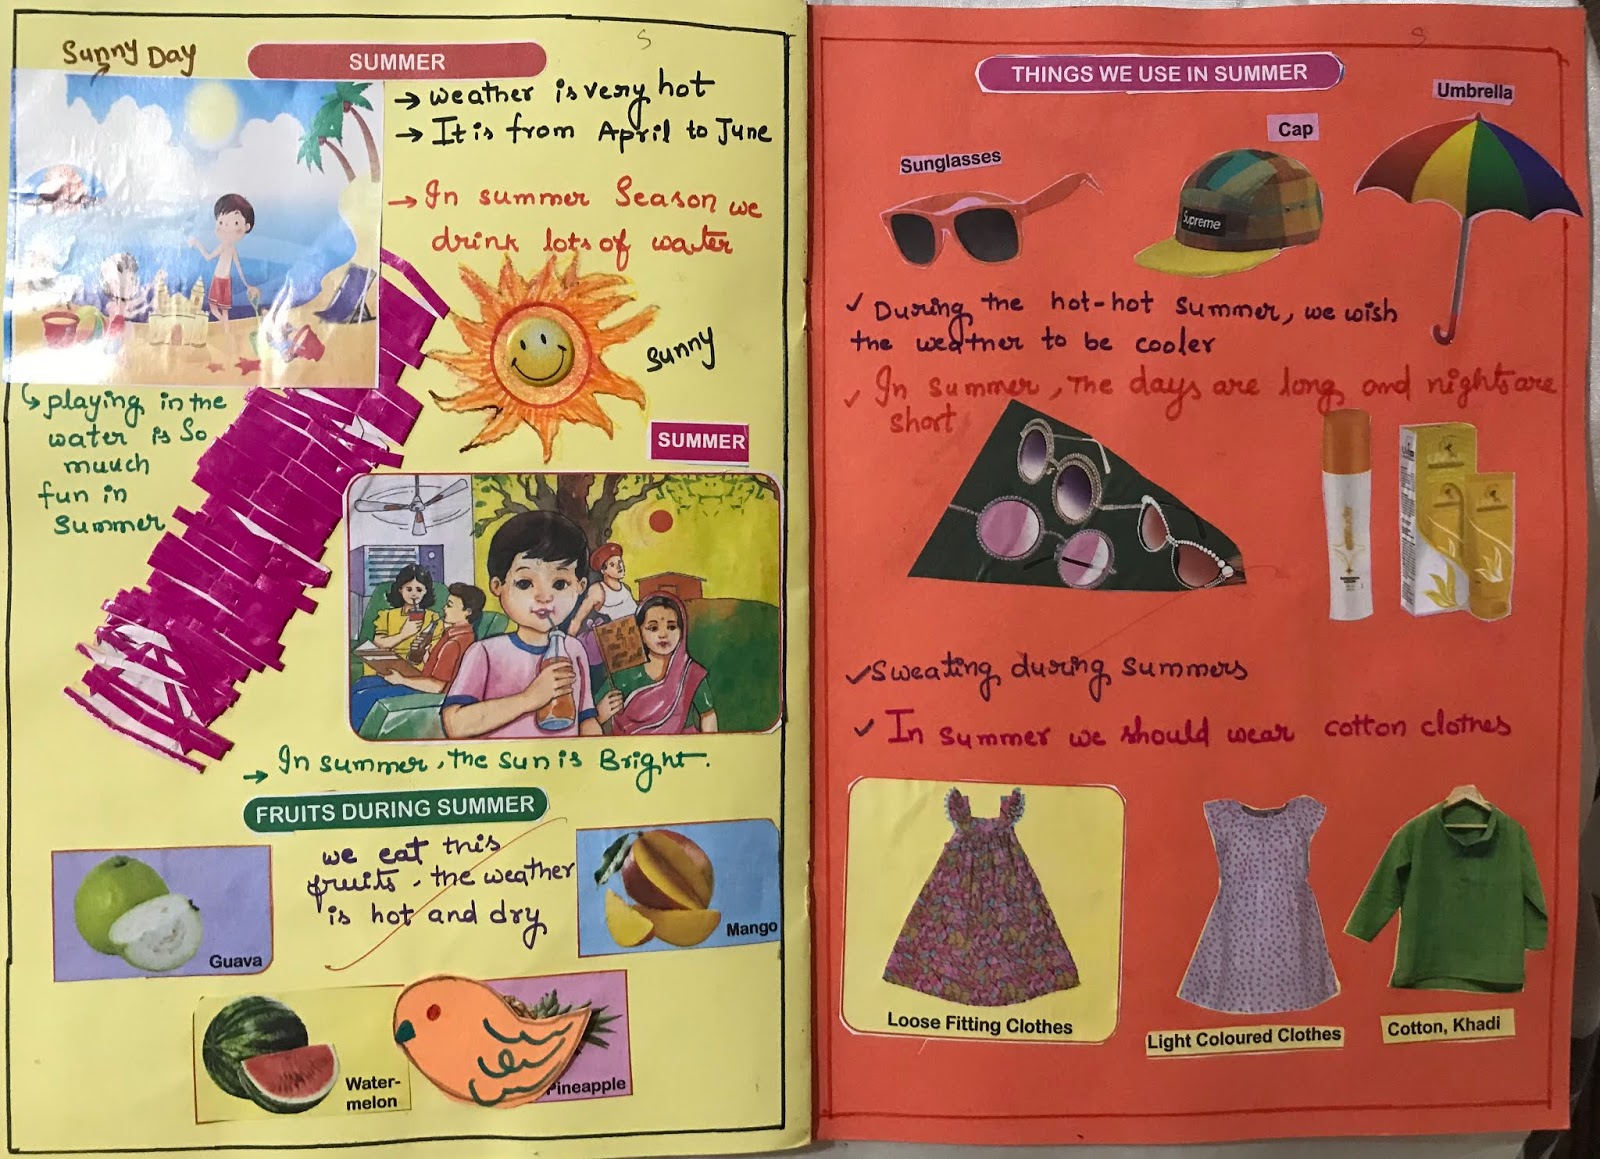 Sunny Day
SUMMER
→ weather is very hot
→ It is from April to June
→ In summer Season we
drink lots of water
Sunny
↳ playing in the
water is So
muuch
fun in
Summer
SUMMER
→ In summer, the sun is Bright.
FRUITS DURING SUMMER
we eat this
fruits, the weather
is hot and dry
Guava
Mango
Water-
melon
Pineapple
THINGS WE USE IN SUMMER
Sunglasses
Cap
Umbrella
Supreme
✓ During the hot-hot summer, we wish
the weather to be cooler
✓ In summer, the days are long and nights are
short
✓ Sweating during summers
✓ In summer we should wear cotton clothes
Loose Fitting Clothes
Light Coloured Clothes
Cotton, Khadi